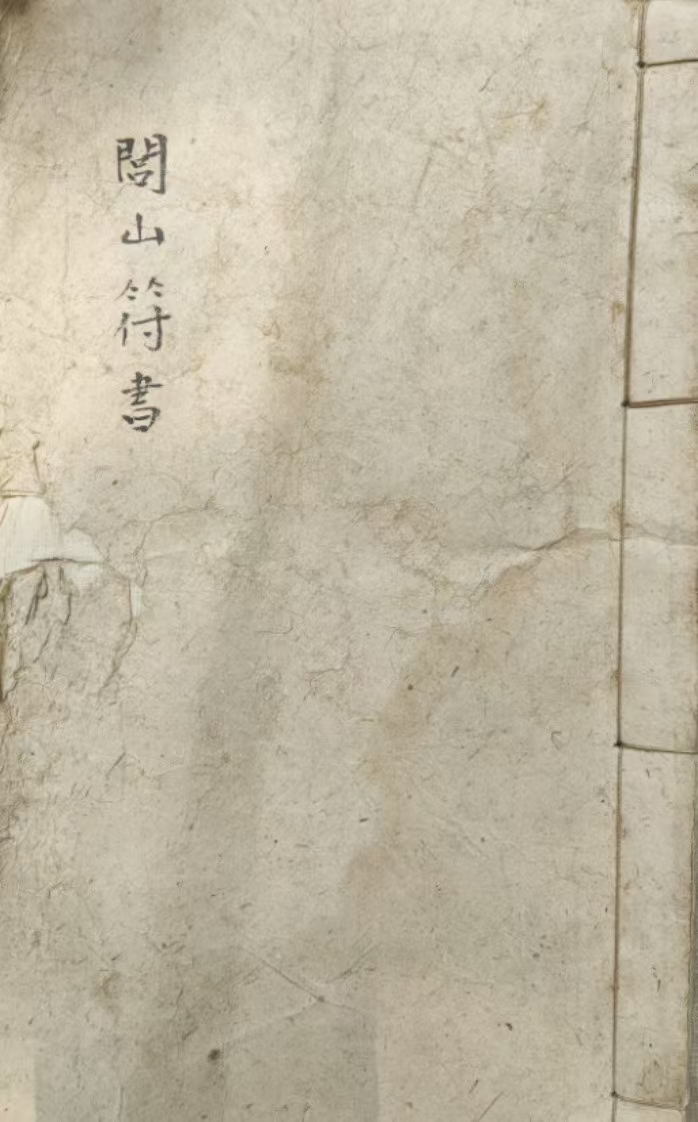 閭山符書